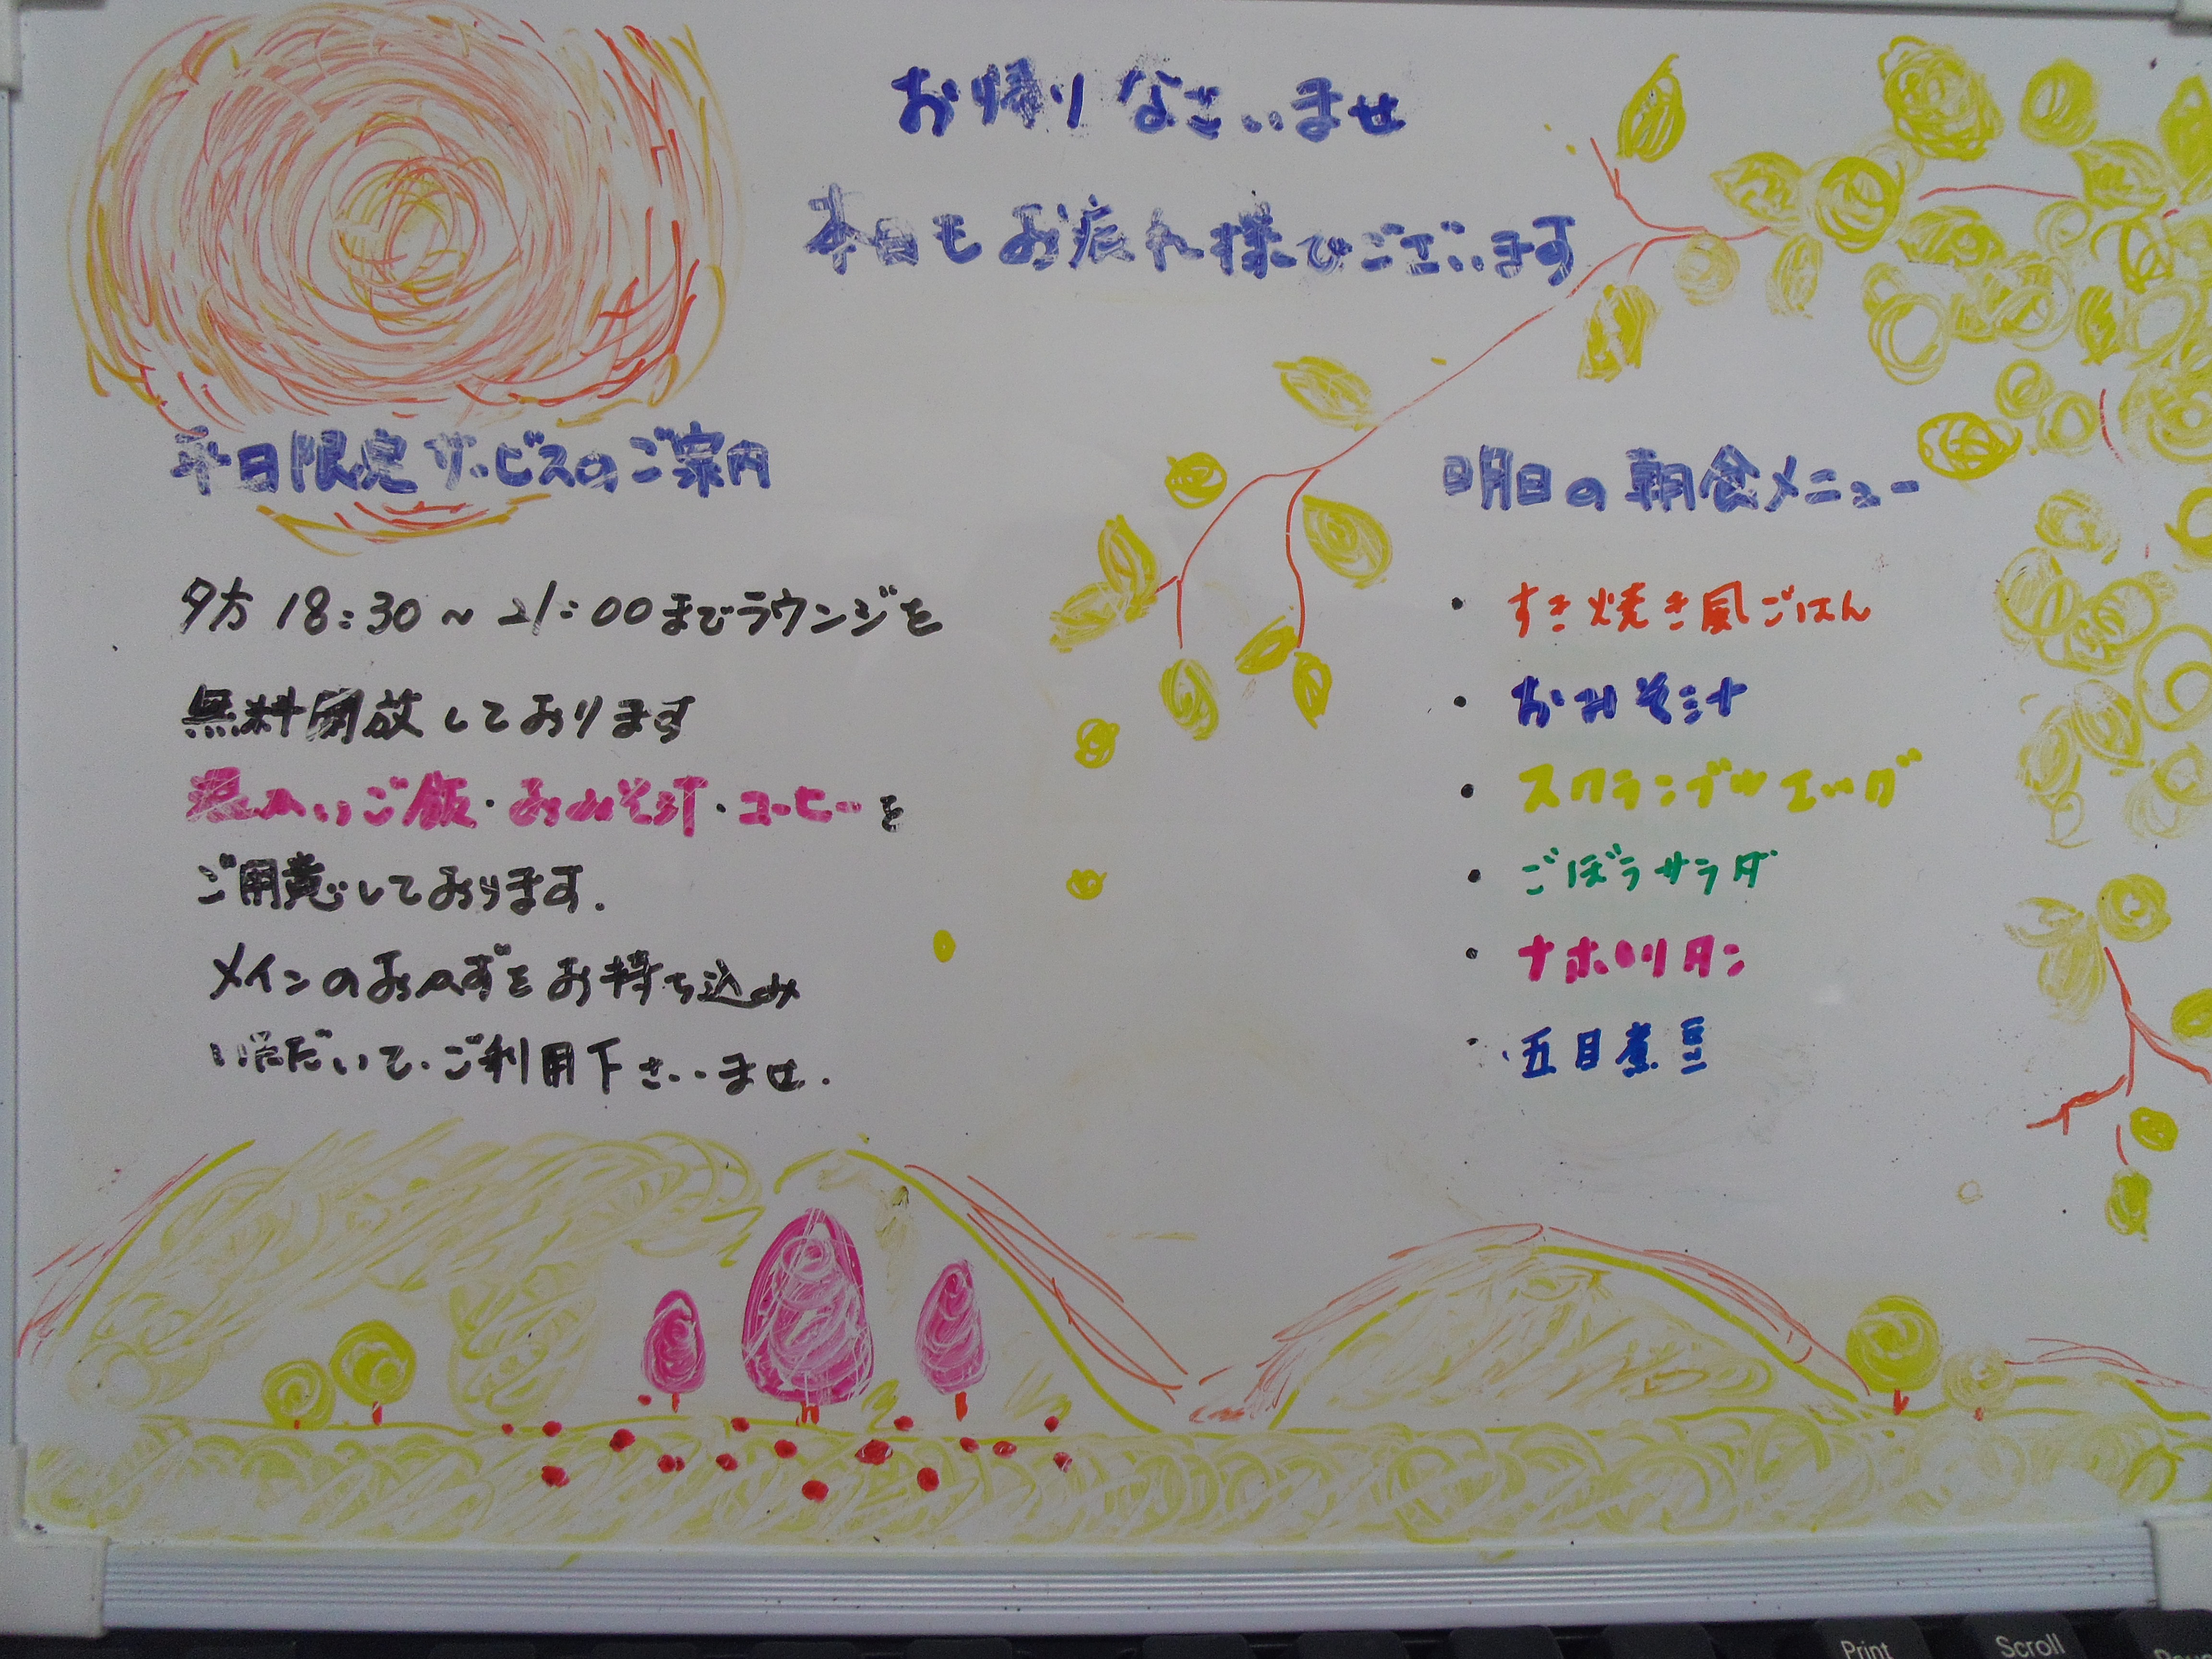 お帰りなさいませ
本日もお疲れ様でございます
平日限定サービスのご案内
夕方 18:30～21:00までラウンジを
無料開放しております
温かいご飯・おみそ汁・コーヒーを
ご用意しております.
メインのおかずをお持ち込み
いただいて・ご利用下さいませ.
明日の朝食メニュー
・すき焼き風ごはん
・おみそ汁
・スクランブルエッグ
・ごぼうサラダ
・ナポリタン
・五目煮豆
Print
Scroll